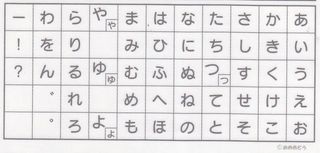 あいうえお
かきくけこ
さしすせそ
たちつってと
なにぬねの
はひふへほ
まみむめも
やゃゆゅよょ
らりるれろ
わをん゛゜
ー！？
©おめめどう